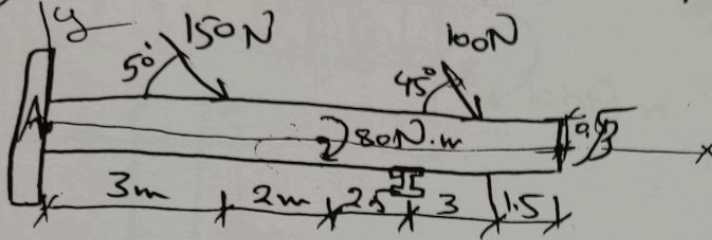 y
150N
100N
5°
45°
A
80N.m
B
x
3m
2m
2.5
3
1.5